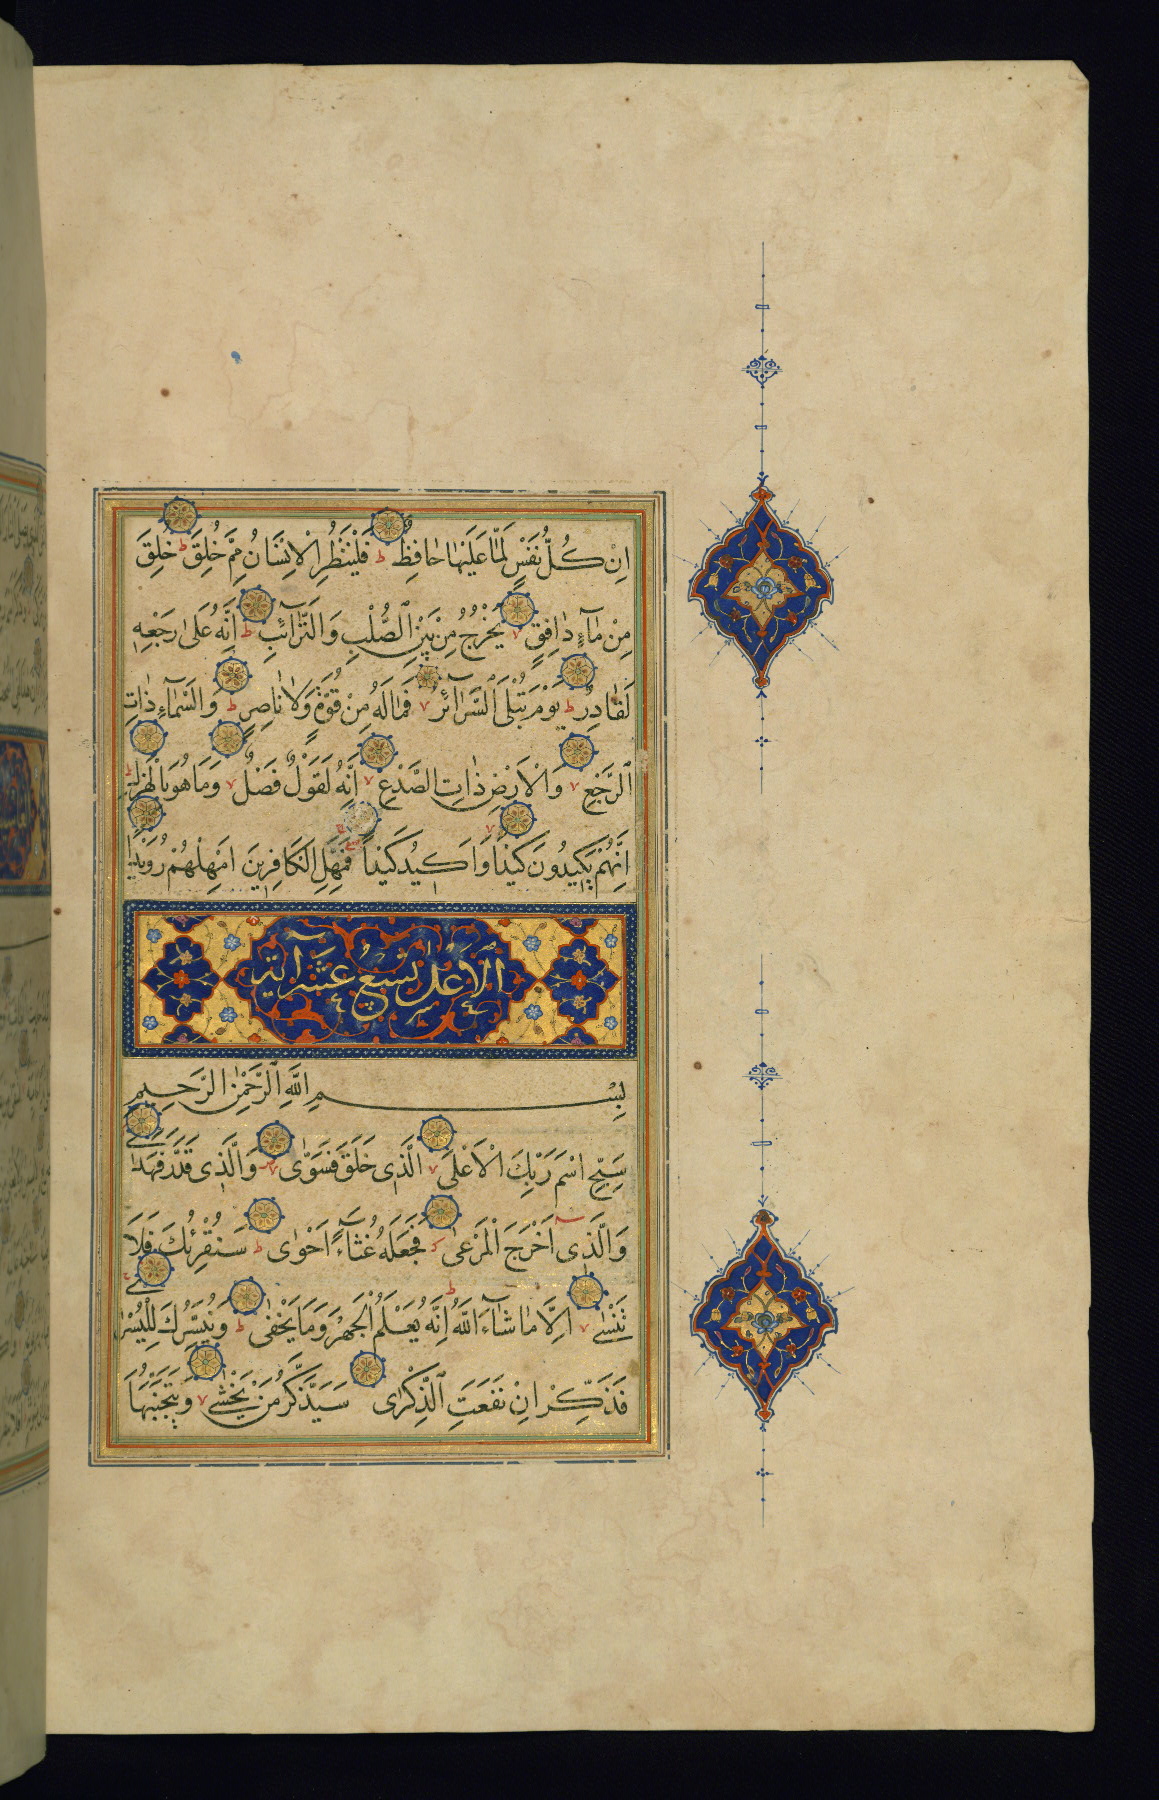 اِنْ كُلُّ نَفْسٍ لَمَّا عَلَيْهَا حَافِظٌ ط فَلْيَنْظُرِ الْاِنْسَانُ مِمَّ خُلِقَ ط خُلِقَ
مِنْ مَآءٍ دَافِقٍ ٧ يَخْرُجُ مِنْ بَيْنِ الصُّلْبِ وَالتَّرَآئِبِ ط اِنَّهُ عَلٰى رَجْعِهِ
لَقَادِرٌ ط يَوْمَ تُبْلَى السَّرَآئِرُ ٧ فَمَالَهُ مِنْ قُوَّةٍ وَلَا نَاصِرٍ ط وَالسَّمَآءِ ذَاتِ
الرَّجْعِ ٧ وَالْاَرْضِ ذَاتِ الصَّدْعِ ٧ اِنَّهُ لَقَوْلٌ فَصْلٌ ٧ وَمَا هُوَ بِالْهَزْلِ ط
اِنَّهُمْ يَكِيدُونَ كَيْدًا ٧ وَاَكِيدُ كَيْدًا فَمَهِّلِ الْكَافِرِينَ اَمْهِلْهُمْ رُوَيْدًا
الاعلى تسع عشر آية
بِسْمِ اللهِ الرَّحْمٰنِ الرَّحِيمِ
سَبِّحِ اسْمَ رَبِّكَ الْاَعْلَى ٧ الَّذِى خَلَقَ فَسَوّٰى وَالَّذِى قَدَّرَ فَهَدٰى
وَالَّذِى اَخْرَجَ الْمَرْعٰى فَجَعَلَهُ غُثَآءً اَحْوٰى ط سَنُقْرِئُكَ فَلَا
تَنْسٰى ٧ اِلَّا مَا شَآءَ اللهُ ط اِنَّهُ يَعْلَمُ الْجَهْرَ وَمَا يَخْفٰى ط وَنُيَسِّرُكَ لِلْيُسْرٰى
فَذَكِّرْ اِنْ نَفَعَتِ الذِّكْرٰى سَيَذَّكَّرُ مَنْ يَخْشٰى ٧ وَيَتَجَنَّبُهَا